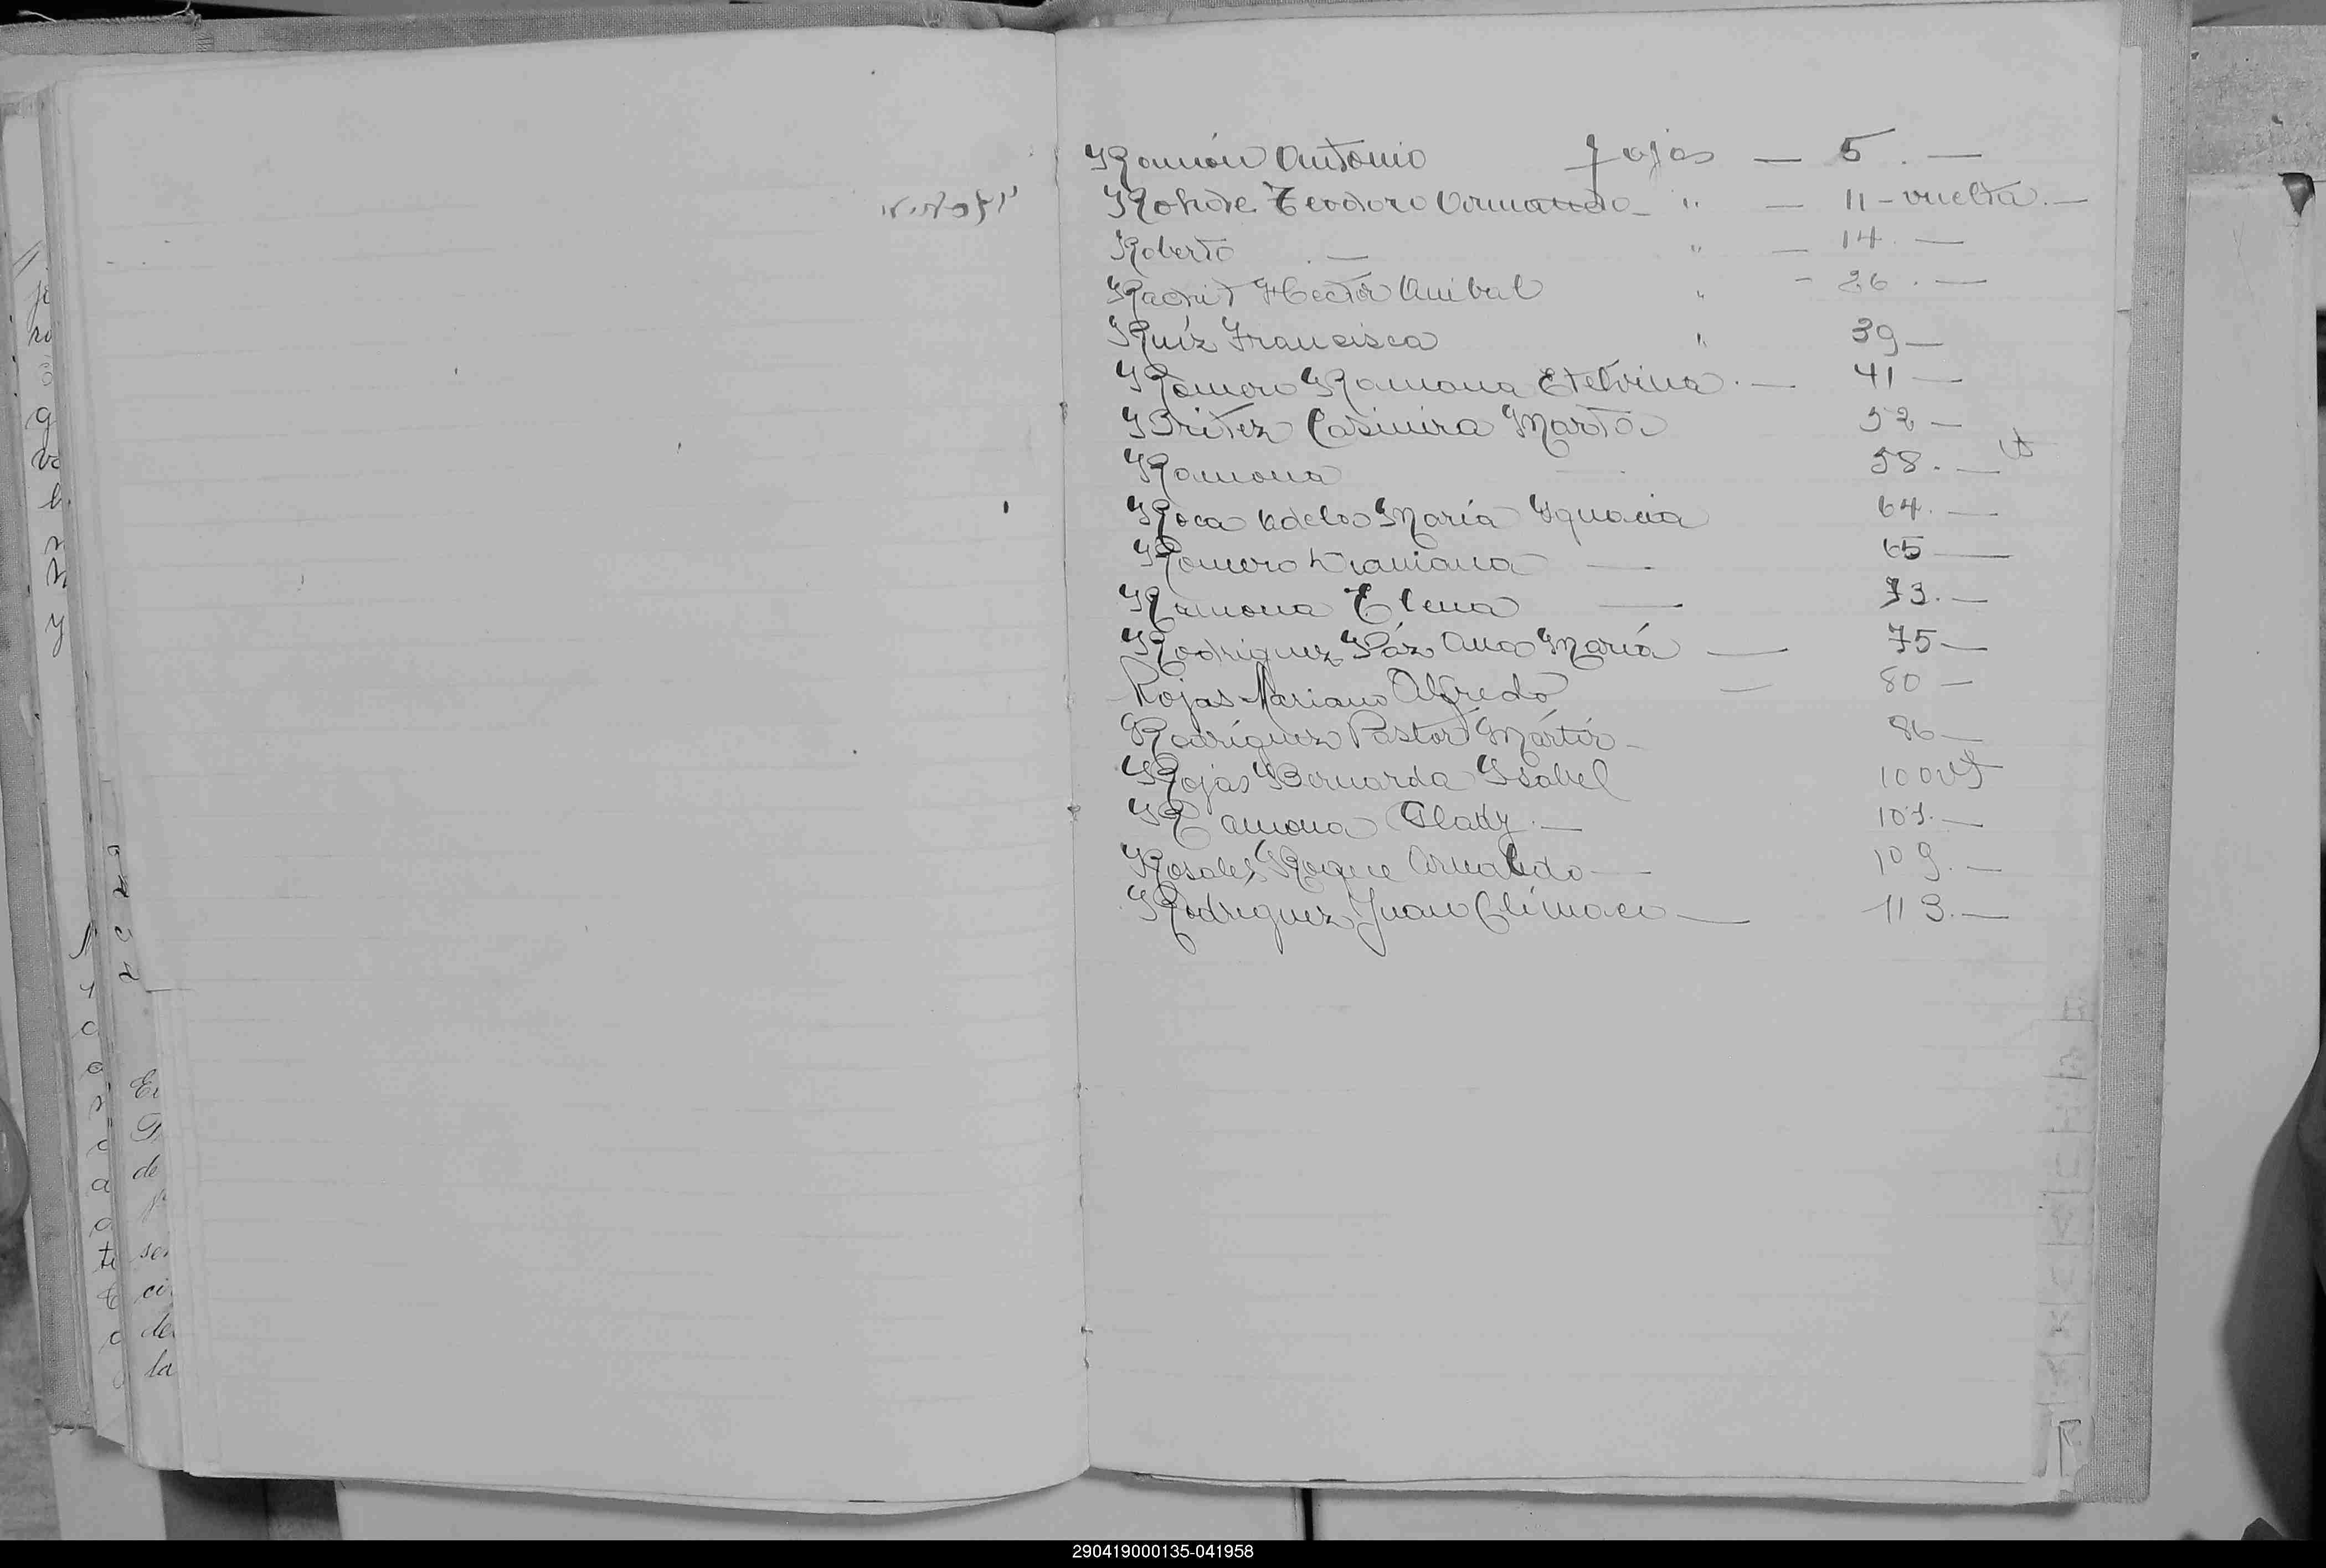 Ramón Antonio fojas — 5. —
Rohde Teodoro Armando — " — 11 - vuelta. —
Roberto . — " — 14. —
Hector Anibal " - 26. —
Ruíz Francisca " 39 —
Romero Ramona Etelvina. — 41 —
Britez Casimira Marta 52 —
Ramona 58. — vt
Roca Adela María Ygnacia 64. —
Romero — 65 —
Ramona Elena — 73. —
Rodriguez Páz Ana María — 75 —
Rojas Mariano Alfredo — 80 —
Rodríguez Pastor Mártir — 86 —
Rojas Bernarda Ysabel 100 vt
Ramona Glady. — 101. —
Rosales Roque Arnaldo — 109. —
Rodriguez Juan Clímaco — 113. —
R
290419000135-041958